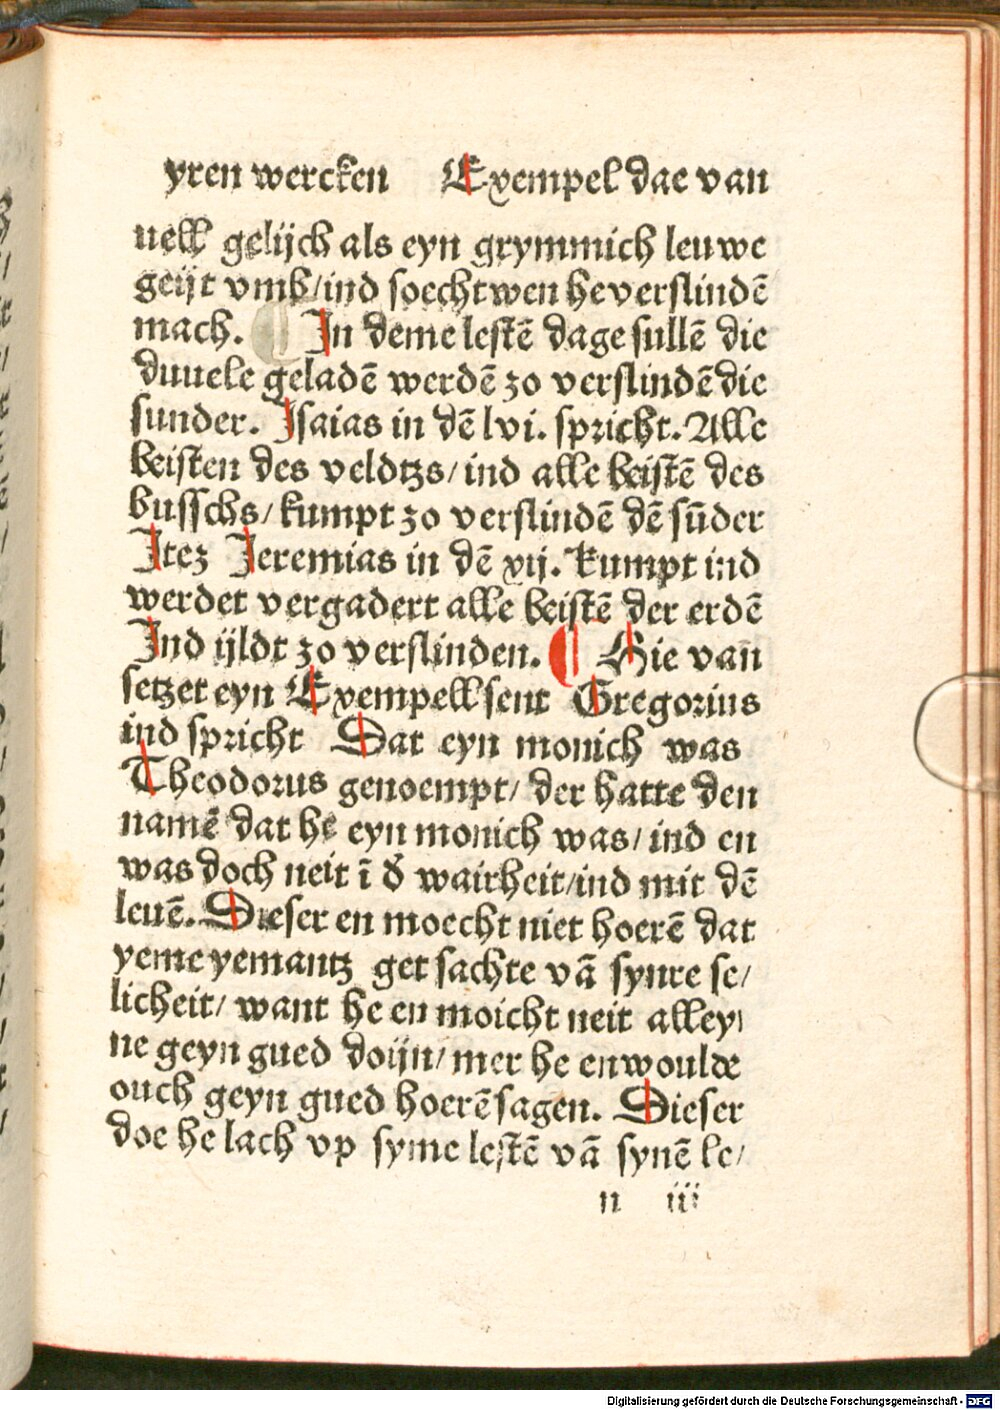 yren wercken Exempel dae van
uell gelijch als eyn grymmich leuwe
geijt vmb/ind soecht wen he verslindē
mach. ¶ In deme lestē dage sullē die
duuele geladē werdē zo verslindē die
sunder. Isaias in dē lvi. spricht. Alle
beisten des veldtzs/ ind alle beistē des
busschs/ kumpt zo verslindē dē sūder
Itez Jeremias in dē xij. kumpt ind
werdet vergadert alle beistē der erdē
Ind ijldt zo verslinden. ¶ Hie van
setzet eyn Exempell sent Gregorius
ind spricht Dat eyn monich was
Theodorus genoempt/ der hatte den
namē dat he eyn monich was/ ind en
was doch neit ī d̄ wairheit/ind mit dē
leuē. Dieser en moecht niet hoerē dat
yeme yemantz get sachte vā synre se/
licheit/ want he en moicht neit alley/
ne geyn gued doijn/ mer he en woulde
ouch geyn gued hoerē sagen. Dieser
doe he lach vp syme lestē vā synē le/
n iij
Digitalisierung gefördert durch die Deutsche Forschungsgemeinschaft - DFG